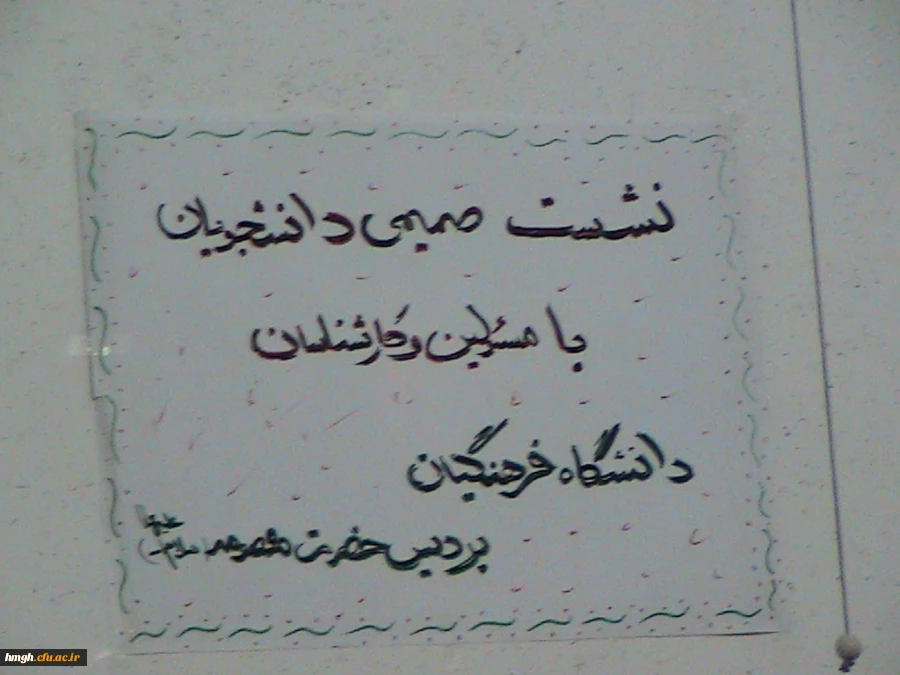 نشست صمیمی دانشجویان
با مسئولین و کارشناسان
دانشگاه فرهنگیان
پردیس حضرت معصومه (سلام ا... علیها)
hmgh.cfu.ac.ir